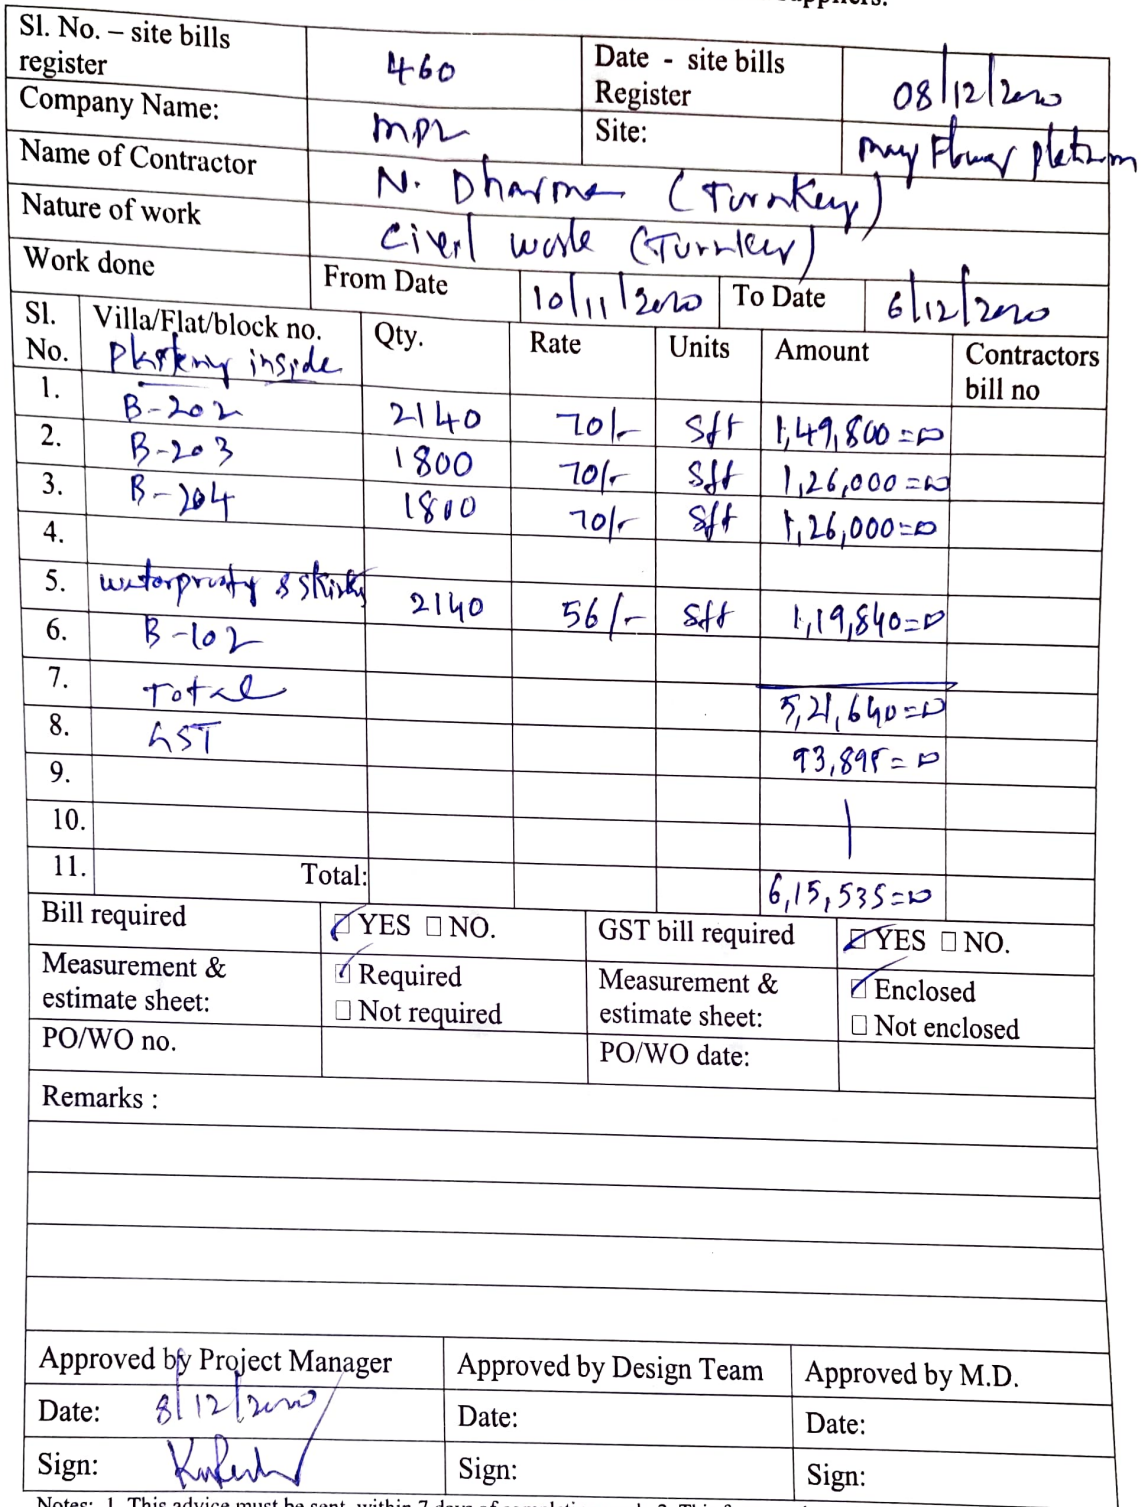 Sl. No. – site bills register 460 Date - site bills Register 08/12/2020
Company Name: MPL Site: May Flower Platinum
Name of Contractor N. Dharma (Turnkey)
Nature of work Civil work (Turnkey)
Work done From Date 10/11/2020 To Date 6/12/2020
Sl. No. Villa/Flat/block no. Qty. Rate Units Amount Contractors bill no
Plastering inside
1. B-202 2140 70/- Sft 1,49,800=00
2. B-203 1800 70/- Sft 1,26,000=00
3. B-204 1800 70/- Sft 1,26,000=00
4.
5. waterproofing & skirting 2140 56/- Sft 1,19,840=00
6. B-102
7. Total 5,21,640=00
8. GST 93,895=00
9.
10.
11. Total: 6,15,535=00
Bill required YES NO. GST bill required YES NO.
Measurement & estimate sheet: Required Not required Measurement & estimate sheet: Enclosed Not enclosed
PO/WO no. PO/WO date:
Remarks :
Approved by Project Manager Approved by Design Team Approved by M.D.
Date: 8/12/2020 Date: Date:
Sign: Sign: Sign: